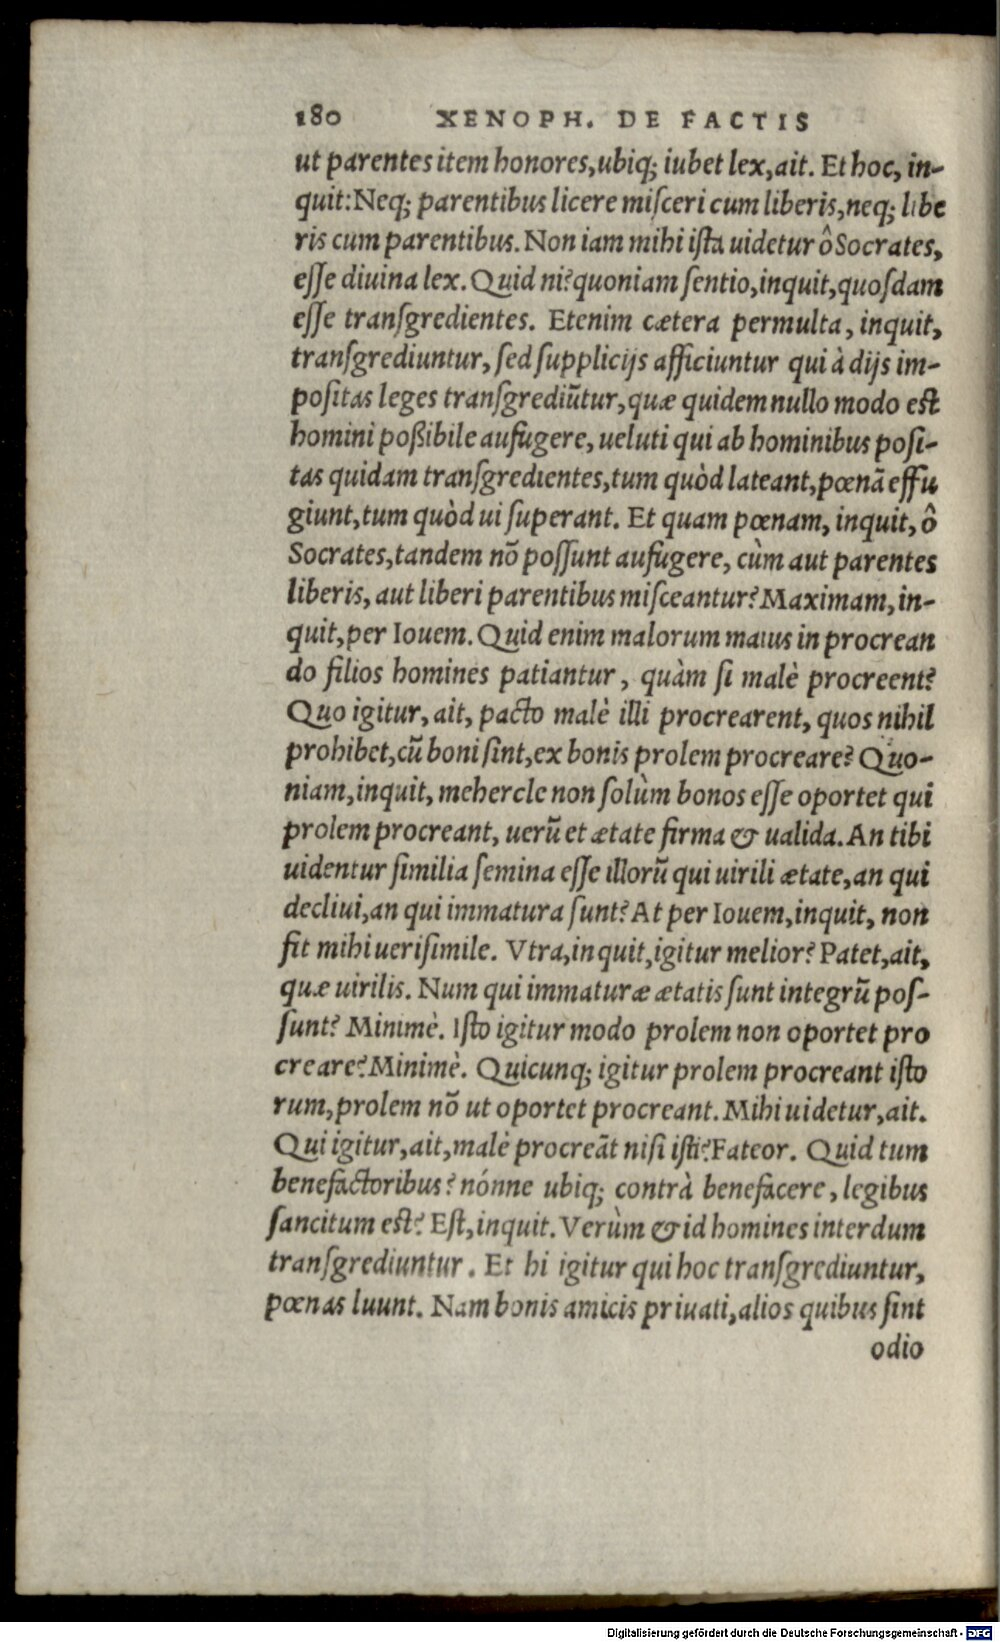 180 XENOPH. DE FACTIS
ut parentes item honores, ubiq; iubet lex, ait. Et hoc, in-
quit: Neq; parentibus licere miſceri cum liberis, neq; libe
ris cum parentibus. Non iam mihi iſta uidetur ô Socrates,
eſſe diuina lex. Quid ni? quoniam ſentio, inquit, quoſdam
eſſe tranſgredientes. Etenim cætera permulta, inquit,
tranſgrediuntur, ſed ſupplicijs afficiuntur qui à dijs im-
poſitas leges tranſgrediūtur, quæ quidem nullo modo eſt
homini poßibile aufugere, ueluti qui ab hominibus poſi-
tas quidam tranſgredientes, tum quòd lateant, pœnā effu
giunt, tum quòd ui ſuperant. Et quam pœnam, inquit, ô
Socrates, tandem nō poſſunt aufugere, cùm aut parentes
liberis, aut liberi parentibus miſceantur? Maximam, in-
quit, per Iouem. Quid enim malorum maius in procrean
do filios homines patiantur, quàm ſi malè procreent?
Quo igitur, ait, pacto malè illi procrearent, quos nihil
prohibet, cū boni ſint, ex bonis prolem procreare? Quo-
niam, inquit, mehercle non ſolùm bonos eſſe oportet qui
prolem procreant, uerū et ætate firma & ualida. An tibi
uidentur ſimilia ſemina eſſe illorū qui uirili ætate, an qui
decliui, an qui immatura ſunt? At per Iouem, inquit, non
fit mihi ueriſimile. Vtra, inquit, igitur melior? Patet, ait,
quæ uirilis. Num qui immaturæ ætatis ſunt integrū poſ-
ſunt? Minimè. Iſto igitur modo prolem non oportet pro
creare? Minimè. Quicunq; igitur prolem procreant iſto
rum, prolem nō ut oportet procreant. Mihi uidetur, ait.
Qui igitur, ait, malè procreāt niſi iſti? Fateor. Quid tum
benefactoribus? nónne ubiq; contrà benefacere, legibus
ſancitum eſt? Eſt, inquit. Verùm & id homines interdum
tranſgrediuntur. Et hi igitur qui hoc tranſgrediuntur,
pœnas luunt. Nam bonis amicis priuati, alios quibus ſint
odio
Digitalisierung gefördert durch die Deutsche Forschungsgemeinschaft - DFG